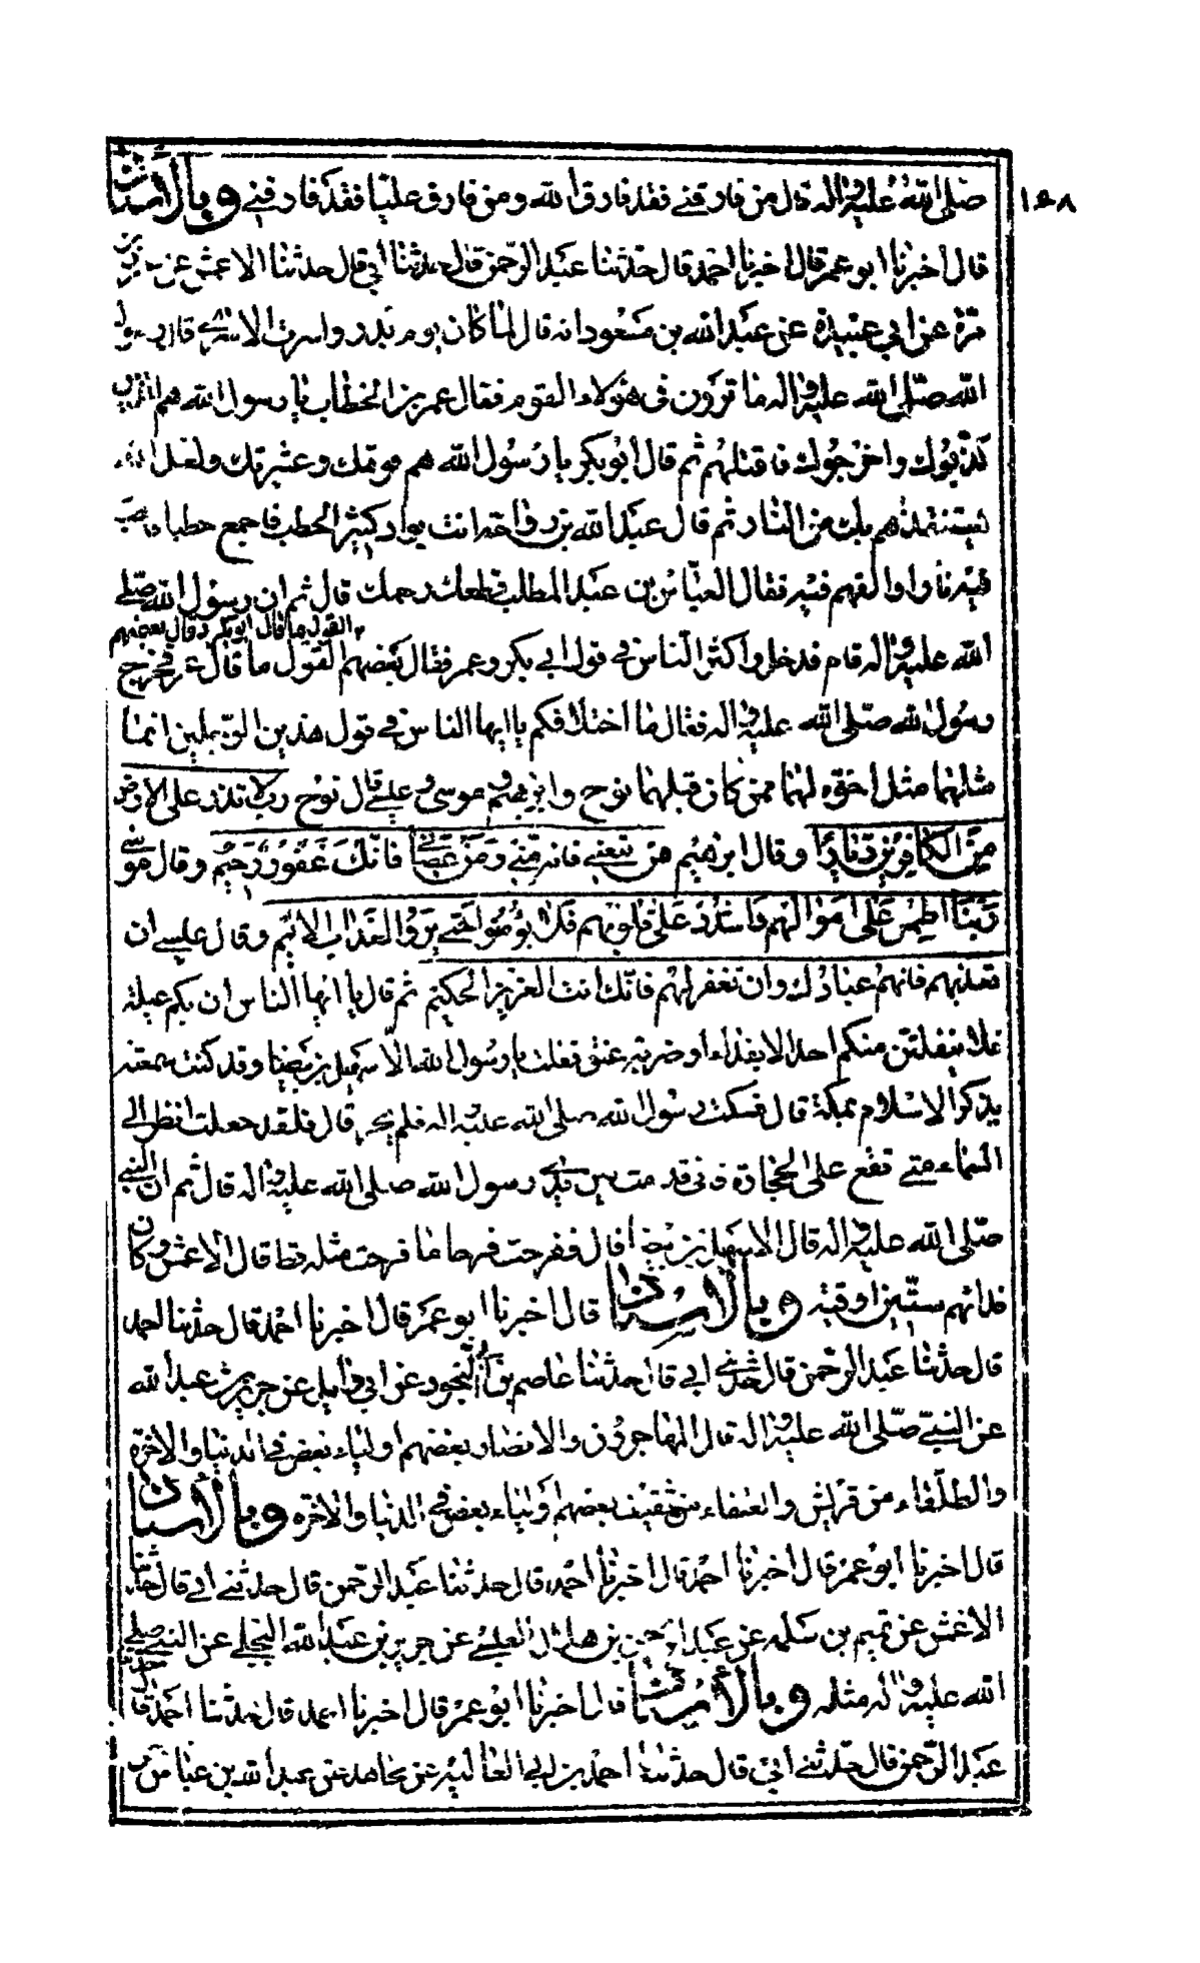 ١٥٨
صلى الله عليه واله قال من فارقني فقد فارق الله ومن فارق عليا فقد فارقني وبالاسناد
قال اخبرنا ابو عمر قال اخبرنا احمد قال حدثنا عبد الرحمن قال حدثنا ابي قال حدثنا الاعمش عن عمرو بن
مرة عن ابي عبيدة عن عبد الله بن مسعود انه قال لما كان يوم بدر واسرت الاسرى قال رسول
الله صلى الله عليه واله ما ترون في هؤلاء القوم فقال عمر بن الخطاب يا رسول الله هم الذين
كذبوك واخرجوك فاقتلهم ثم قال ابو بكر يا رسول الله هم قومك وعشيرتك ولعل الله
يستنقذهم بك من النار ثم قال عبد الله بن رواحة انت بواد كثير الحطب فاجمع حطبا
فيه نارا والقهم فيه فقال العباس بن عبد المطلب قطعك رحمك قال ثم ان رسول الله صلى
القول ما قال ابو بكر وقال بعضهم
الله عليه واله قام فدخل واكثر الناس في قول ابي بكر وعمر فقال بعضهم القول ما قال عمر فخرج
رسول الله صلى الله عليه واله فقال ما اختلافكم يا ايها الناس في قول هذين الرجلين انما
مثلهما مثل اخوة لهما ممن كان قبلهما نوح وابرهيم وموسى وعيسى قال نوح رب لا تذر على الارض
من الكافرين ديارا وقال ابرهيم من تبعني فانه مني ومن عصاني فانك غفور رحيم وقال موسى
ربنا اطمس على اموالهم واشدد على قلوبهم فلا يؤمنوا حتى يروا العذاب الاليم وقال عيسى ان
تعذبهم فانهم عبادك وان تغفر لهم فانك انت العزيز الحكيم ثم قال يا ايها الناس ان بكم عيلة
فلا ينفلتن منكم احد الا بفداء او ضربة عنق فقلت يا رسول الله الا سهيل بن بيضا وقد كنت سمعته
يذكر الاسلام بمكة قال فسكت رسول الله صلى الله عليه واله فلم يجب قال فلقد جعلت انظر الى
السماء متى تقع على الحجارة فاني قدمت بين يدي رسول الله صلى الله عليه واله قال ثم ان النبي
صلى الله عليه واله قال الا سهيل بن بيضا قال ففرحت فرحا ما فرحت مثله قط قال الاعمش وكان
فداؤهم ستين اوقية وبالاسناد قال اخبرنا ابو عمر قال اخبرنا احمد قال حدثنا احمد
قال حدثنا عبد الرحمن قال حدثني ابي قال حدثنا عاصم بن ابي النجود عن ابي وايل عن جرير بن عبد الله
عن النبي صلى الله عليه واله قال المهاجرون والانصار بعضهم اولياء بعض في الدنيا والاخرة
والطلقاء من قريش والعتقاء من ثقيف بعضهم اولياء بعض في الدنيا والاخرة وبالاسناد
قال اخبرنا ابو عمر قال اخبرنا احمد قال اخبرنا احمد قال حدثنا عبد الرحمن قال حدثني ابي قال حدثنا
الاعمش عن تميم بن سلمه عن عبد الرحمن بن هلال العبسي عن جرير بن عبد الله البجلي عن النبي صلى
الله عليه واله مثله وبالاسناد قال اخبرنا ابو عمر قال اخبرنا احمد قال حدثنا احمد قال حدثنا
عبد الرحمن قال حدثني ابي قال حدثنا احمد بن ابي العاليه عن مجاهد عن عبد الله بن عباس